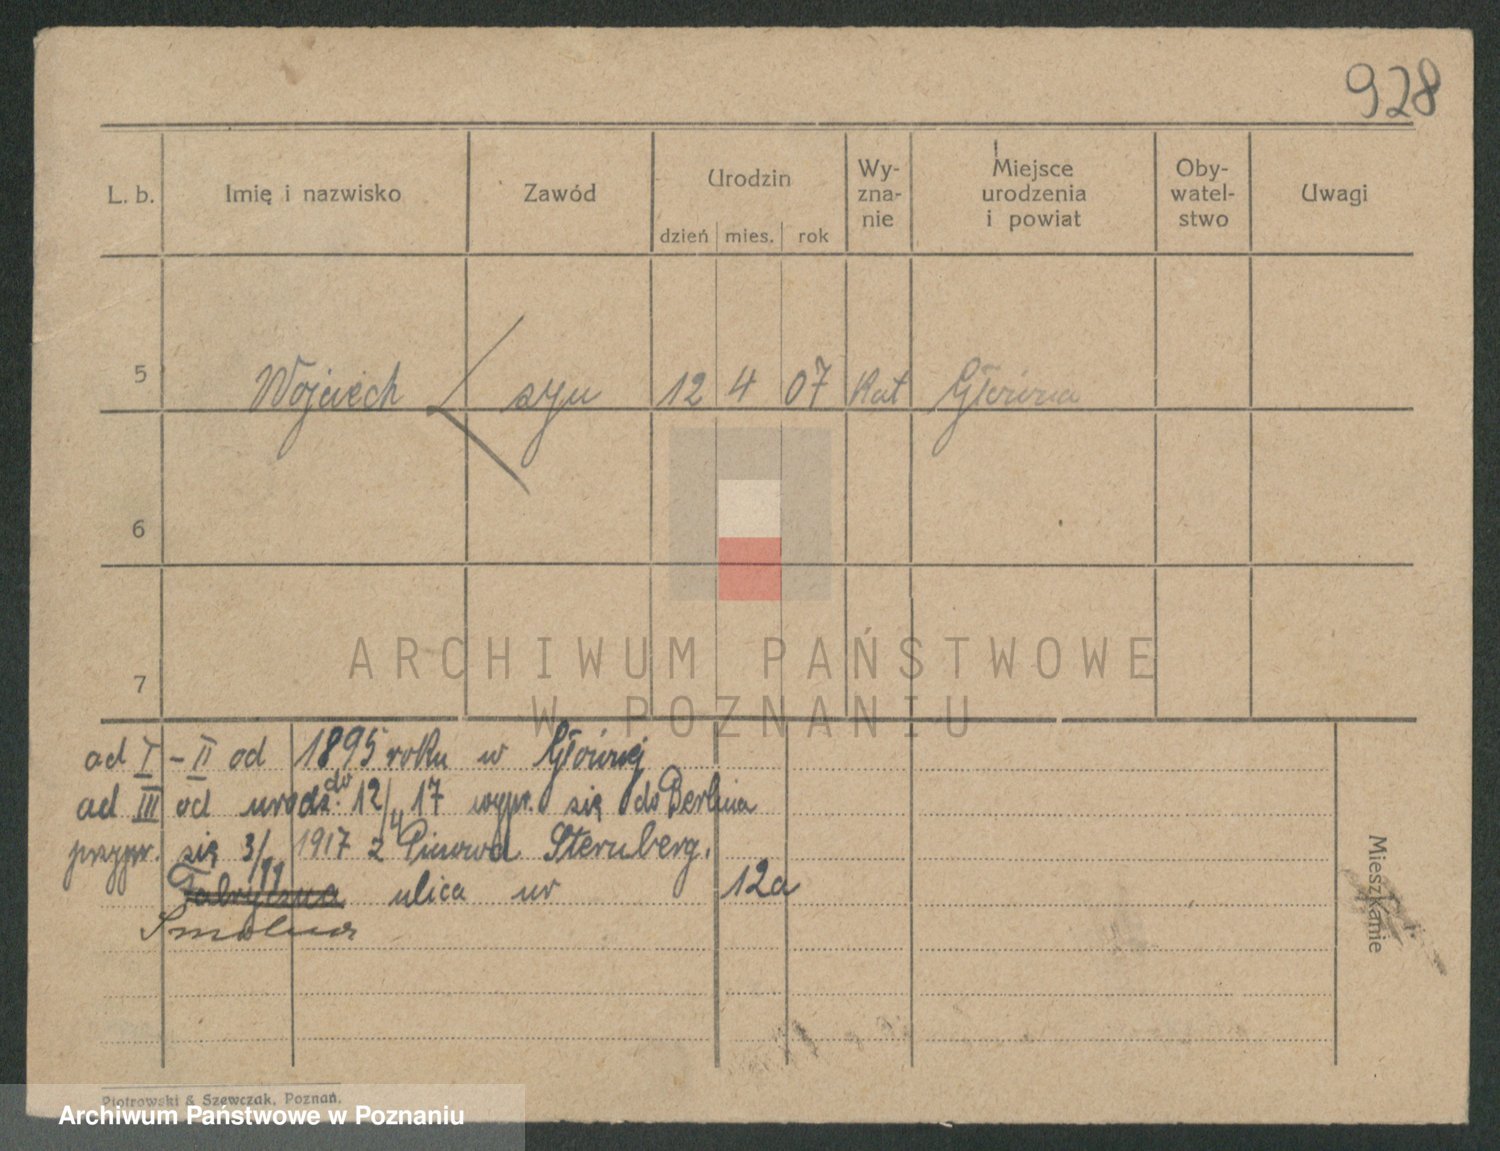 928
L. b. Imię i nazwisko Zawód Urodzin Wy-zna-nie Miejsce urodzenia i powiat Oby-watel-stwo Uwagi
dzień mies. rok
5 Wojciech syn 12 4 07 Kat Główna
6
7
ARCHIWUM PAŃSTWOWE
W POZNANIU
ad I - II od 1895 roku w Głównej
ad III od urodz. do 12/4 17 wypr. się do Berlina
przypr. się 3/11 1917 z Sternberg.
Fabryczna ulica nr 12a
Smolna
Mieszkanie
Piotrowski & Szewczak, Poznań.
Archiwum Państwowe w Poznaniu